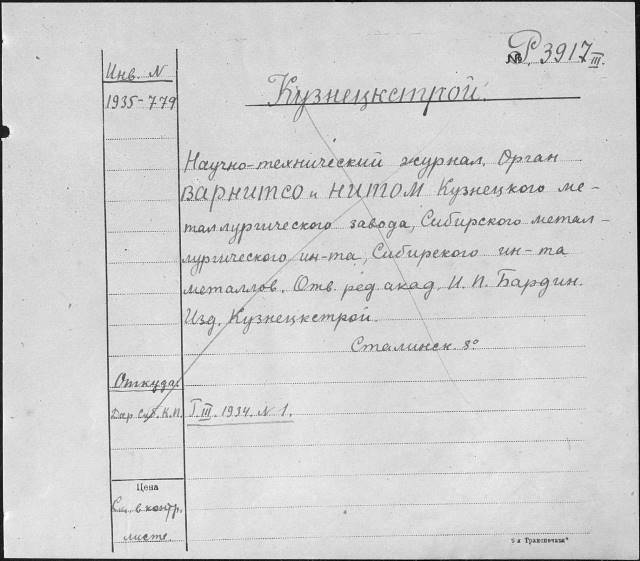 № Р. 3917 III.
Инв. N
1935-779
Кузнецкстрой.
Научно-технический журнал. Орган
ВАРНИТСО и НИТОМ Кузнецкого ме-
таллургического завода, Сибирского метал-
лургического ин-та, Сибирского ин-та
металлов. Отв. ред. акад. И. П. Бардин.
Изд. Кузнецкстрой.
Сталинск 8°
Откуда
Дар К.П. Т. III. 1934. N 1.
Цена
См. в контр.
листе.
5-я Транспечать